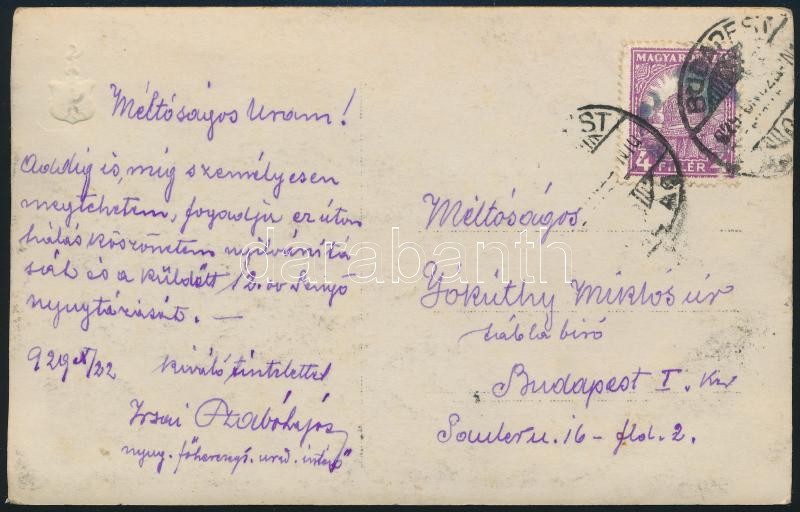 Méltóságos Uram!
Addig is, míg személyesen
megtehetem, fogadja ez úton
hálás köszönetem nyilvánítá
sát és a küldött 12.00 Pengő
nyugtázását. –
929 X/22 kiváló tisztelettel
Irsai Szabó Lajos
nyug. főherczegi urad. intéző
MAGYAR
4 FILLÉR
BUDAPEST
Méltóságos
Yókúthy Miklós úr
tábla bíró
Budapest I. Ker
u. 16 – fld. 2.
darabanth